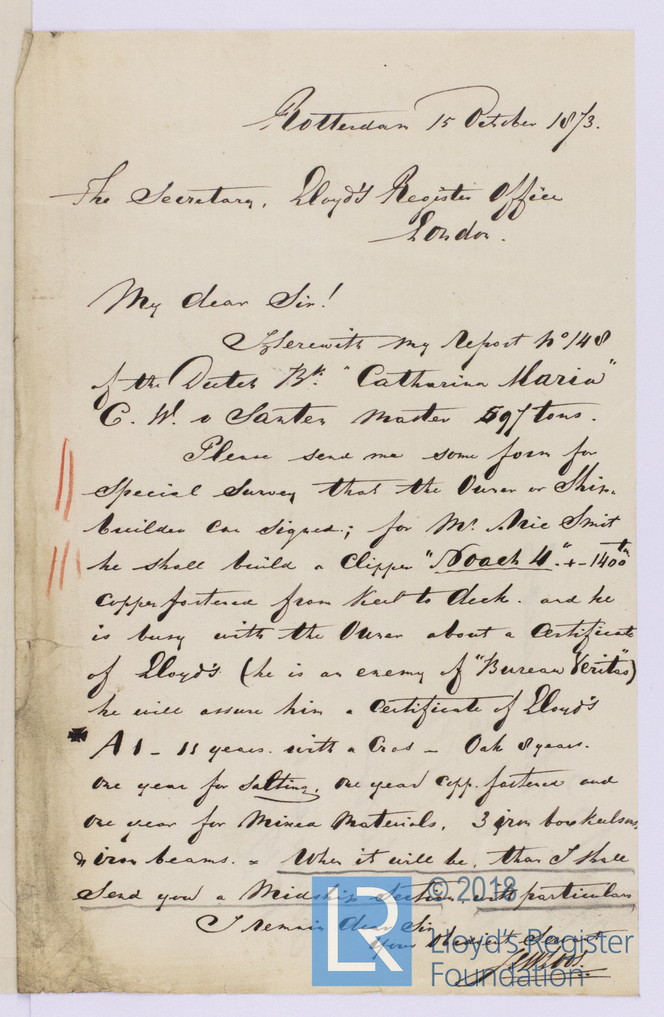 Rotterdam 15 October 1873.
The Secretary, Lloyd's Register Office
London.
My dear Sir!
Herewith my Report No 148
of the Dutch Bk. "Catharina Maria"
C. W. v Santen Master 597 tons.
Please send me some form for
Special Survey that the Owner or Ship-
builder can signed; for Mr. Arie Smit
he shall build a Clipper "Noach 4". +- 1400 tn
copperfastened from keel to deck. and he
is busy with the Owner about a Certificate
of Lloyd's (he is an enemy of "Bureau Veritas")
he will assure him a Certificate of Lloyd's
A 1 - 11 years. with a Cros - Oak 8 years.
one year for Salting, one year copp. fastened and
one year for Mixed Materials. 3 iron box keelsons,
& iron beams. = When it will be, than I shall
Send you a Midship Section with particulars
I remain dear Sir
Your obedient Servant
© 2018
Lloyd's Register
Foundation
LR